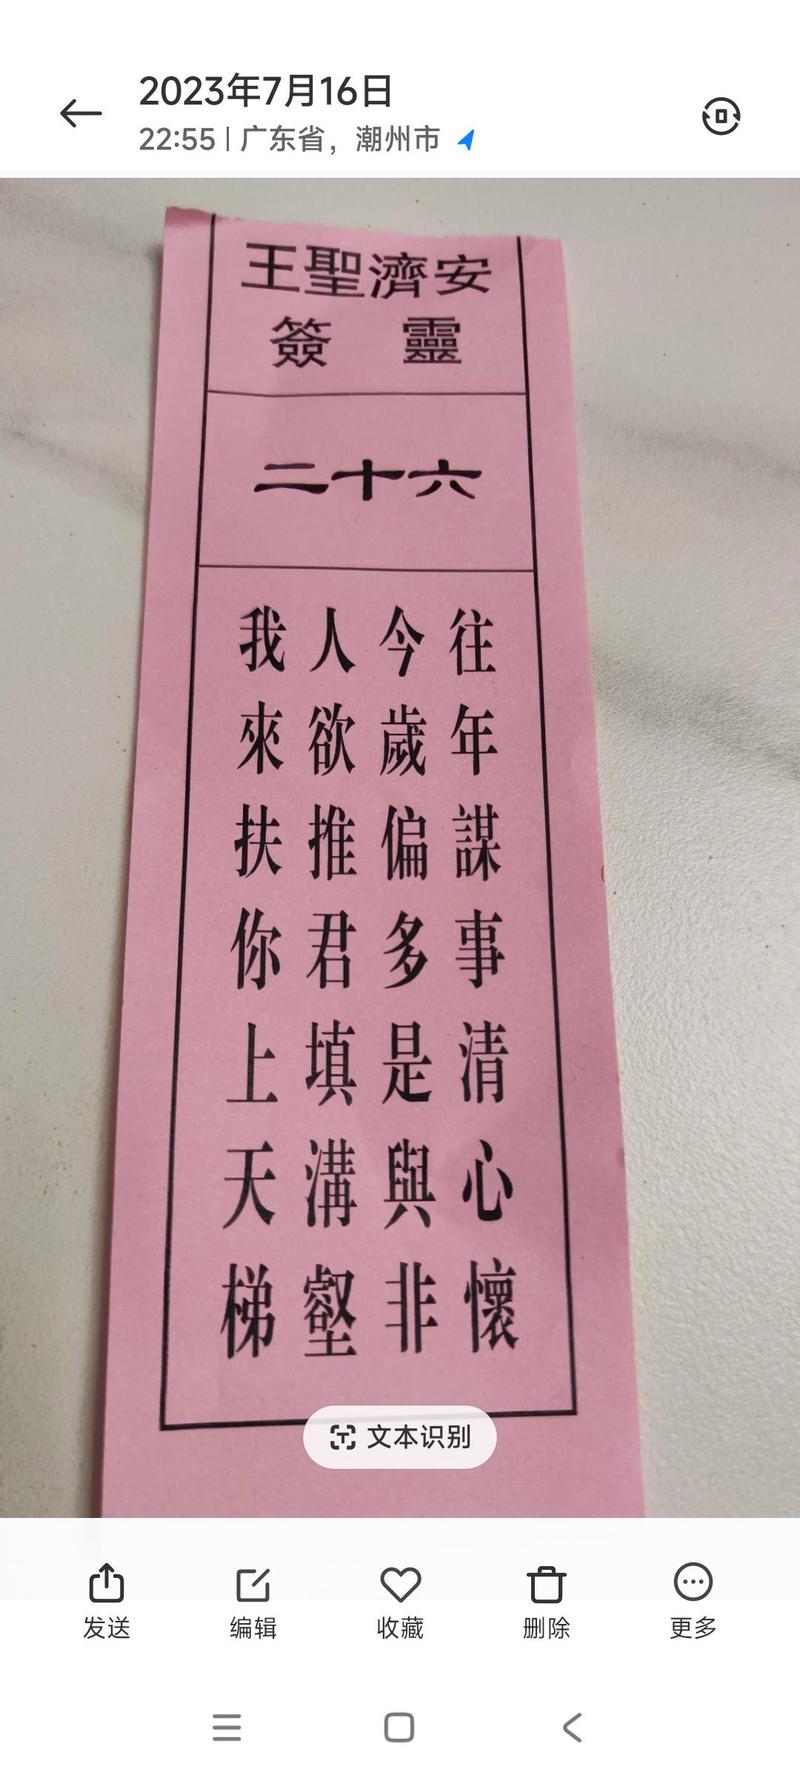 2023年7月16日
22:55 | 广东省，潮州市
安濟聖王
靈簽
二十六
往年謀事清心懷
今歲偏多是與非
人欲推君填溝壑
我來扶你上天梯
文本识别
发送
编辑
收藏
删除
更多